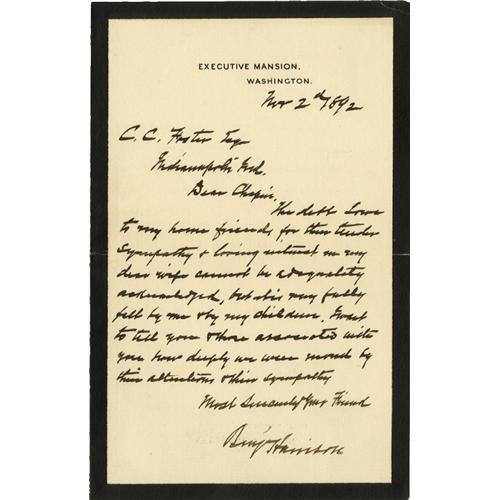 EXECUTIVE MANSION,
WASHINGTON.
Nov 2d 1892
C. C. Foster Esq
Indianapolis Ind.
Dear Chapin,
The debt I owe
to my home friends for their tender
sympathy & loving interest in my
dear wife cannot be adequately
acknowledged, but it is very fully
felt by me & by my children. I want
to tell you & those associated with
you how deeply we were moved by
their attentions & their sympathy
Most Sincerely Your Friend
Benj Harrison